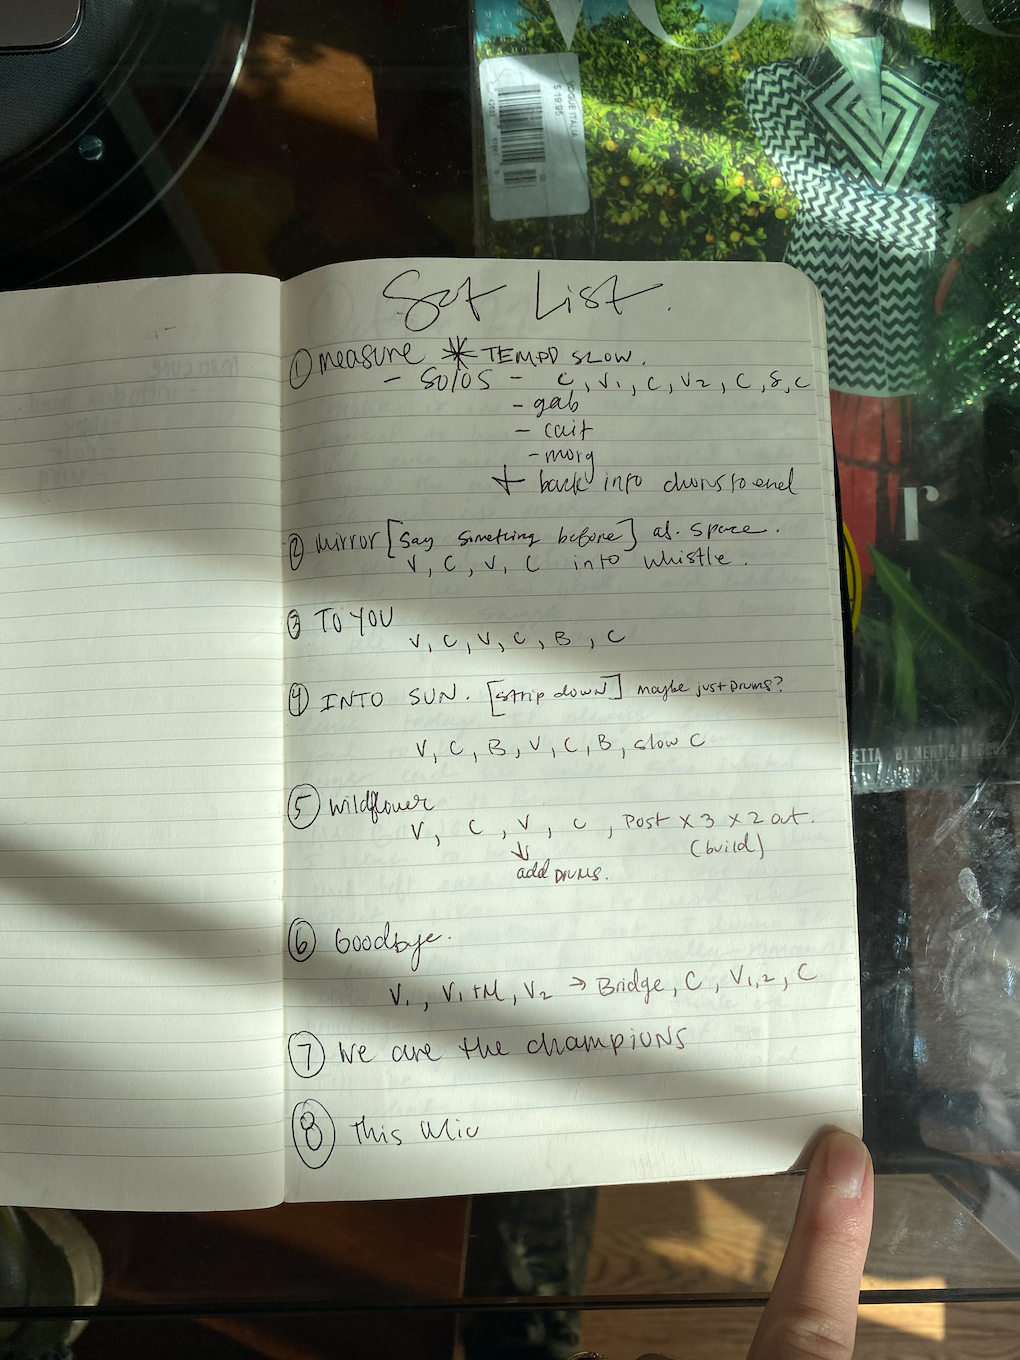 VOGUE ITALIA
$ 19.95
Set List.
① measure * TEMPO SLOW.
- SOlOS - C, V1, C, V2, C, S, C
- gab
- cait
- morg
+ back into chorus to end
② mirror [Say something before] ab. space.
V, C, V, C into whistle.
③ TO YOU
V, C, V, C, B, C
④ INTO SUN. [strip down] maybe just Drums?
V, C, B, V, C, B, slow C
⑤ wildflower
V, C, V, C, Post x 3 x 2 out.
↓ (build)
add Drums.
⑥ Goodbye.
V1, V1+M, V2 → Bridge, C, V1,2, C
⑦ We are the champions
⑧ This
r